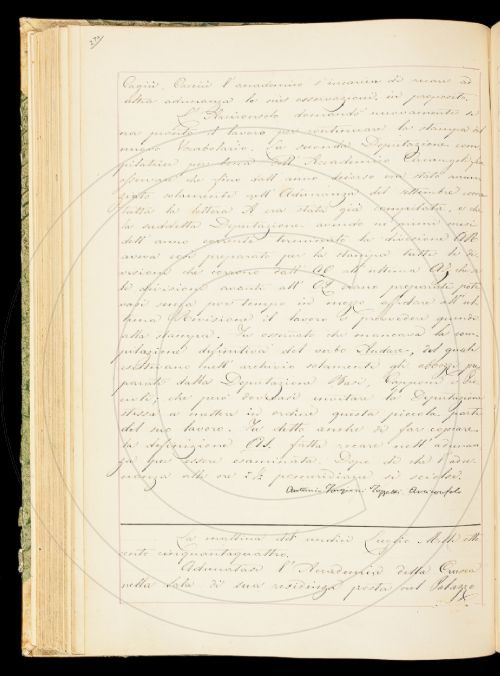 l'accademico s'incarica di recare ad
altra adunanza le sue osservazioni in proposito.
L'Arciconsolo domandò nuovamente se
era pronto il lavoro per continuare la stampa del
nuovo Vocabolario. La seconda Deputazione com-
pilatrice per bocca dell'Accademico
che fino dall'anno decorso era stato annun-
ziato solamente nell'Adunanza del settembre come
tutta la lettera A era stata già compilata, e che
la suddetta Deputazione avendo nei primi mesi
dell'anno corrente terminata la divisione
aveva così preparato per la stampa tutte le di-
visioni che corrono dall' all'ultima
le divisioni avanti all' erano preparate pote-
vasi senza por tempo in mezzo affidare all'ul-
tima Revisione il lavoro e provvedere quindi
alla stamperia. Fu osservato che mancava la com-
pilazione definitiva del verbo Andare, del quale
esistevano nell'archivio solamente gli pre-
parati dalla Deputazione Basi, Capponi e
che però dovevasi invitare la Deputazione
stessa a mettere in ordine questa piccola parte
del suo lavoro. Fu detto anche di far copiare
la definizione fatta recare nell'adunan-
za per essere esaminata. Dopo di che l'adu-
nanza alle ore pomeridiane si sciolse.
Antonio Arciconsolo
La mattina del undici Luglio Mille otto
cento cinquantaquattro.
Adunatasi l'Accademia della Crusca
nella Sala di sua residenza posta nel Palazzo